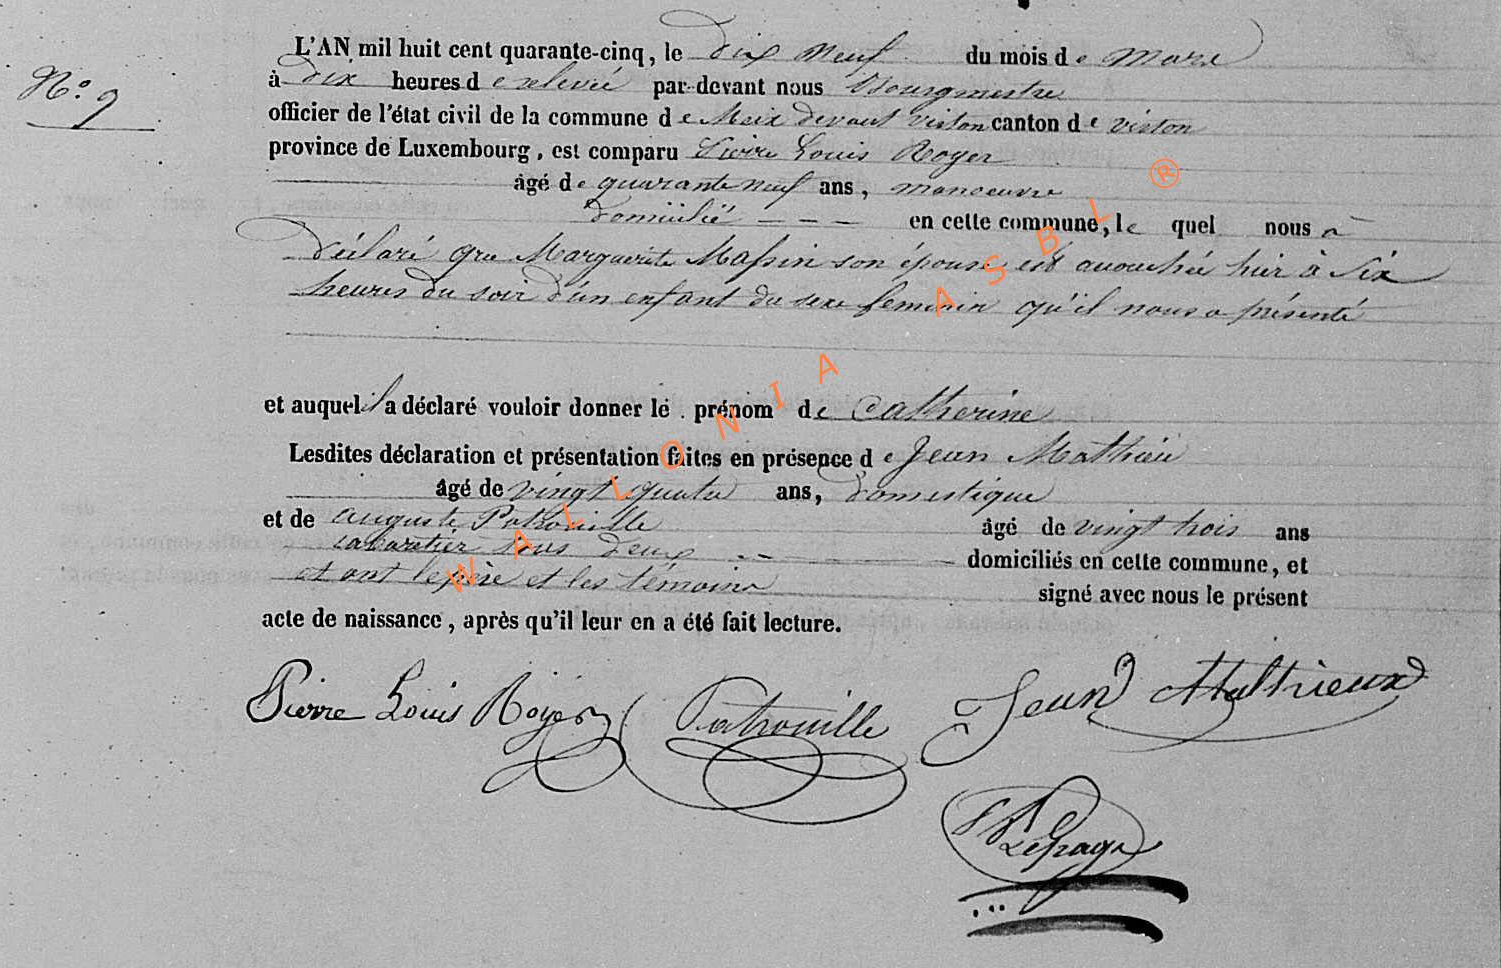 N.º 9
L'AN mil huit cent quarante-cinq, le dix neuf du mois de mars
à dix heures de relevée par-devant nous Bourgmestre
officier de l'état civil de la commune de Meix devant virton canton de virton
province de Luxembourg, est comparu Pierre Louis Royer
âgé de quarante neuf ans, manoeuvre
domicilié — — — en cette commune, le quel nous a
déclaré que Marguerite Massin son épouse est accouchée hier à six
heures du soir d'un enfant du sexe feminin qu'il nous a présenté
et auquel il a déclaré vouloir donner le prénom de Catherine
Lesdites déclaration et présentation faites en présence de Jean Mathieu
âgé de vingt quatre ans, domestique
et de auguste Patrouille âgé de vingt trois ans
cabaretier tous deux domiciliés en cette commune, et
et ont le père et les témoins signé avec nous le présent
acte de naissance, après qu'il leur en a été fait lecture.
Pierre Louis Royer Patrouille Jean Mathieux
Lepage
WALLONIA ASBL ®